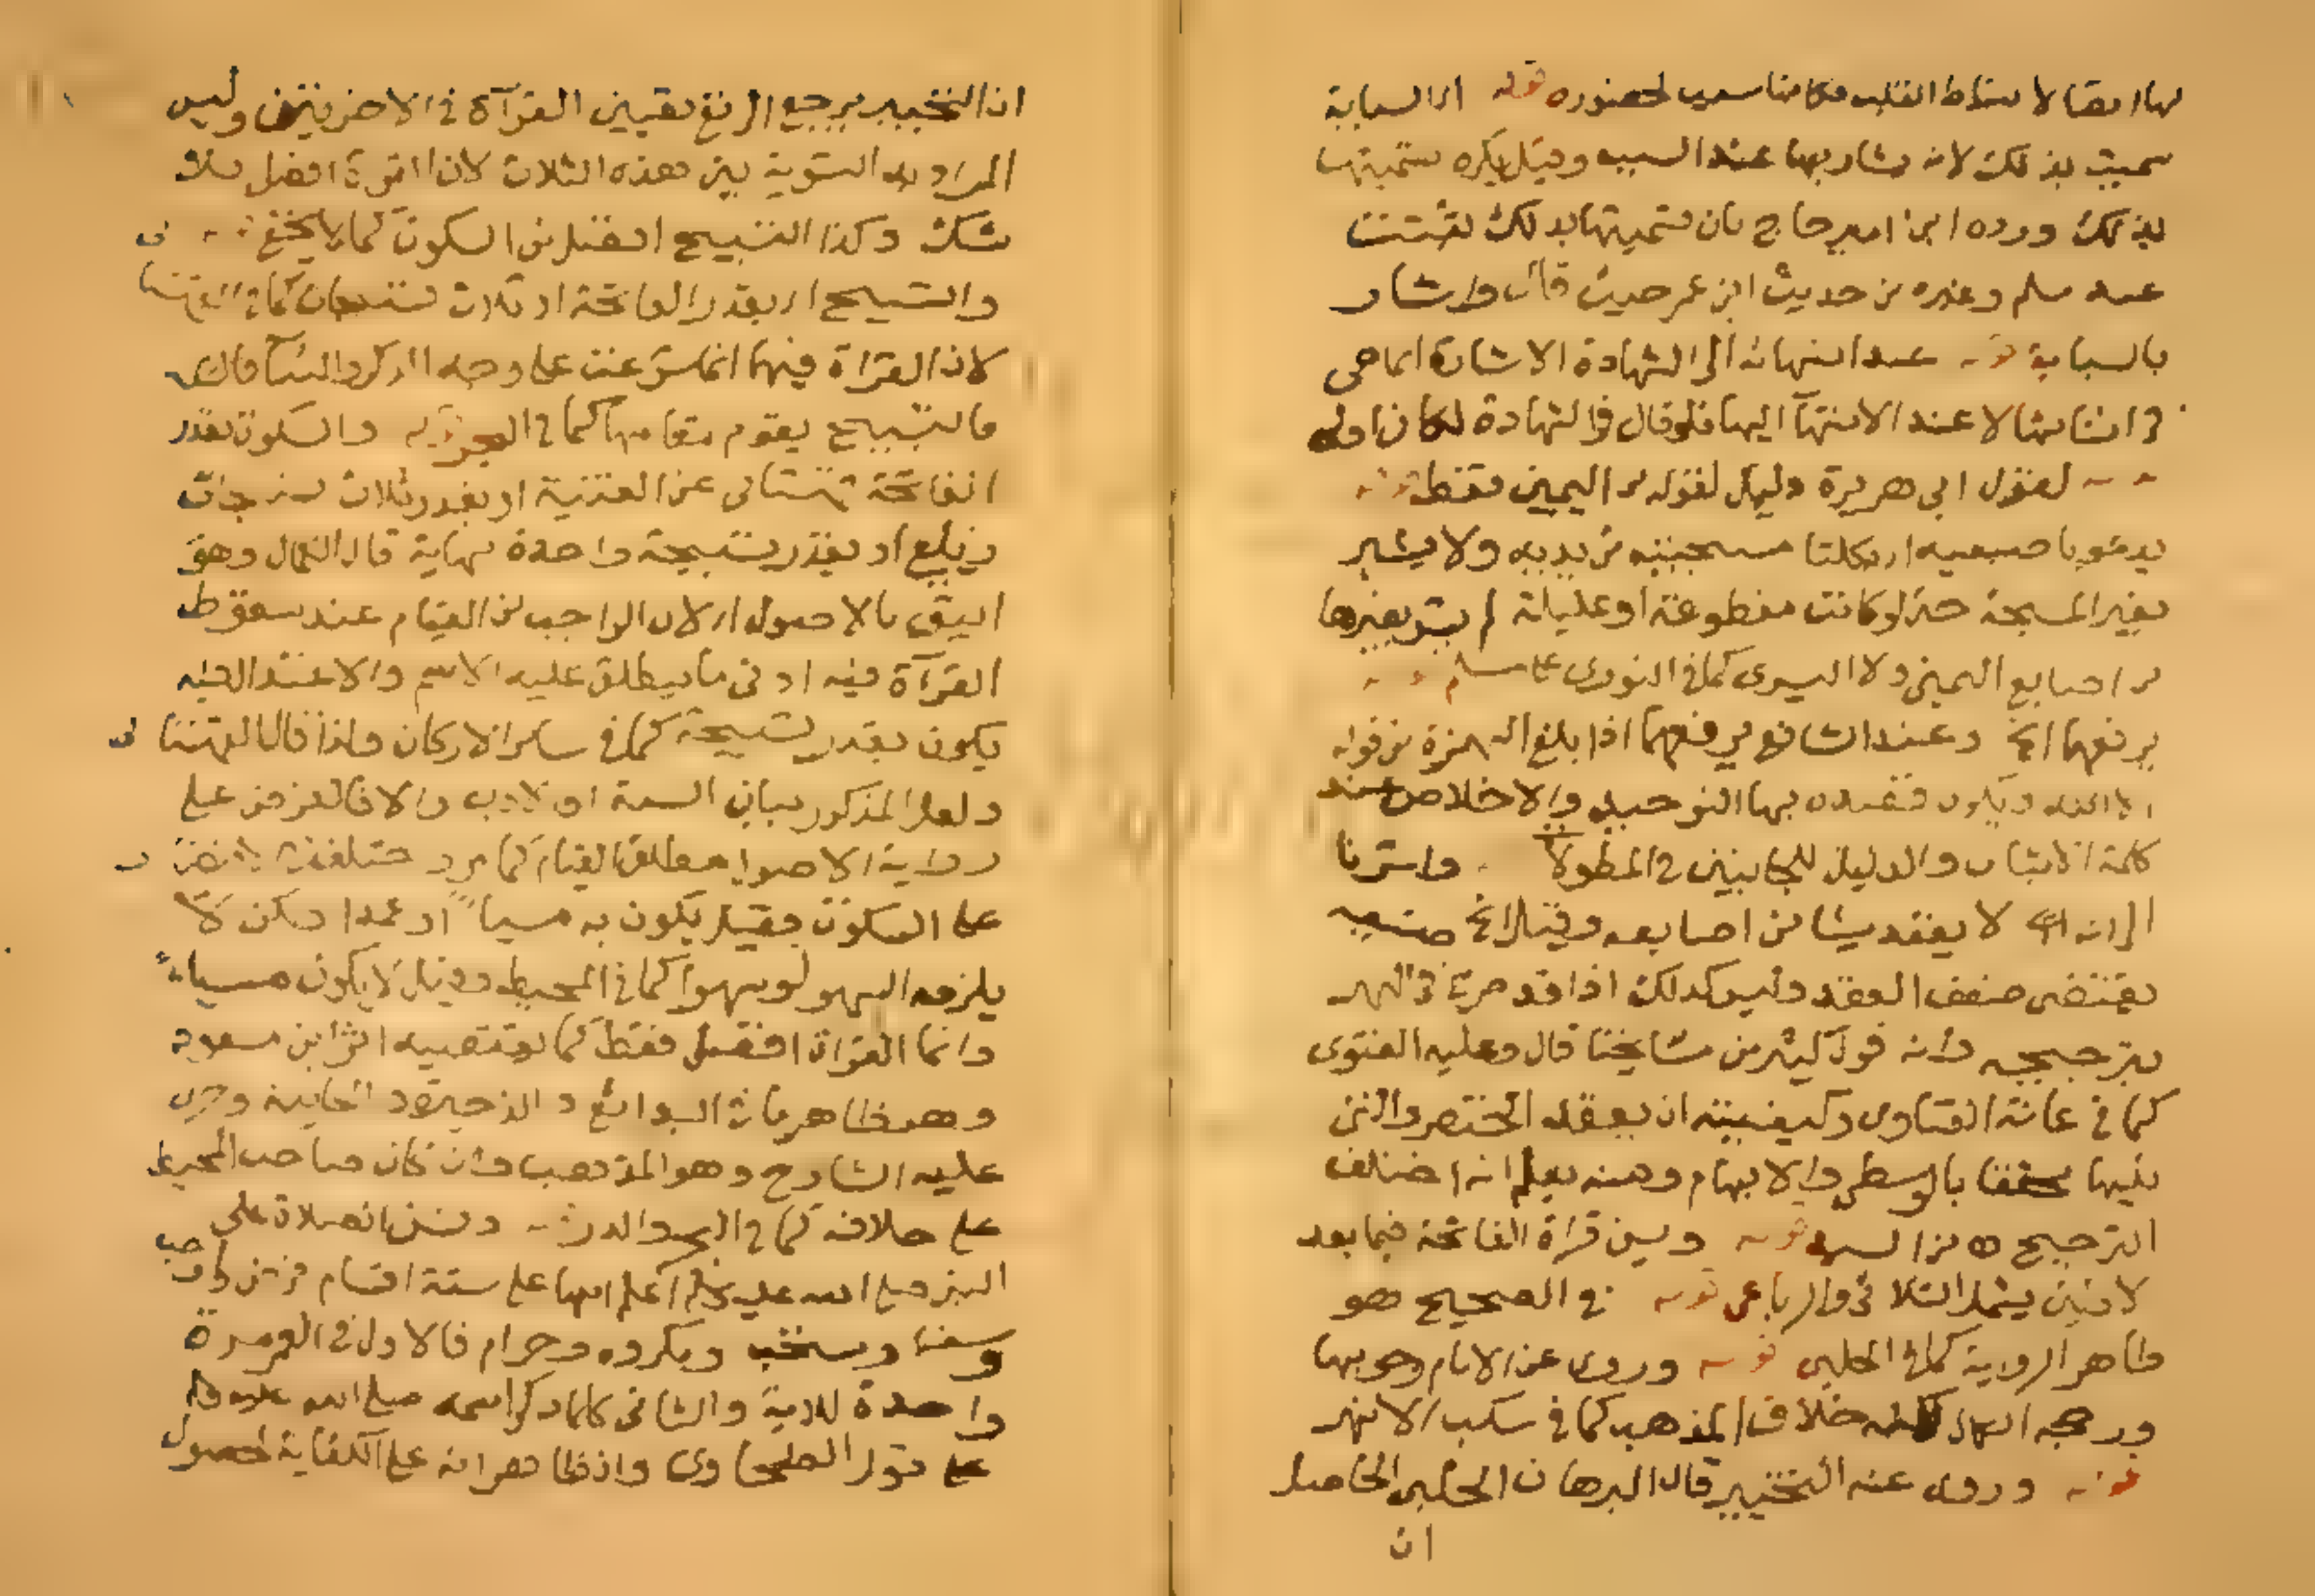 لها اتصالا بنياط القلب فكانها سبب لحضوره قوله اي السبابة
سميت بذلك لانه يشار بها عند السب وقيل يكره تسميتها
بذلك ورده ابن امير حاج بان تسميتها بذلك تثبت
عند مسلم وغيره من حديث ابن عمر حيث قال واشار
بالسبابة قوله عند انتهائه الى الشهادة الاشارة انما هي
في اثنائها لا عند الانتهآ اليها فلو قال في الشهادة لكان اولى
لقول ابي هريرة دليل لقوله من اليمين فقط قوله
يدعو باصبعيه اي بكلتا مسبحتيه من يديه ولا يشير
بغير المسبحة حتى لو كانت مقطوعة او عليلة لم يشر بغيرها
من اصابع اليمنى ولا اليسرى كما في النووي على مسلم قوله
يرفعها الخ وعند الشافعي يرفعها اذا بلغ الهمزة من قوله
الا الله ويكون قصده بها التوحيد والاخلاص عند
كلمة الاثبات والدليل للجانبين في المطولات واشرنا
الى انه الخ لا يعقد شيئا من اصابعه وقيل الخ صنيعه
يقتضي ضعف العقد وليس كذلك اذ قد صرح في النهر
بترجيحه وانه قول كثير من مشايخنا قال وعليه الفتوى
كما في عامة الفتاوى وكيفيته ان يعقد الخنصر والتي
يليها محلقا بالوسطى والابهام ومنه يعلم انه اختلف
الترجيح من السيد قوله ويسن قراة الفاتحة فيما بعد
الاوليين يشمل الثلاثي والرباعي قوله في الصحيح هو
ظاهر الرواية كما في الحلبي قوله وروى عن الامام وجوبها
ورجحه الكمال خلاف المذهب كما في سكب الانهر
قوله وروى عنه التخيير قال البرهان الحلبي الحاصل
ان
ان التخيير يرجع الى نفي تعيين القرآة في الاخريين وليس
المراد به التسوية بين هذه الثلاث لان القراة افضل بلا
شك وكذا التسبيح افضل من السكوت كما لا يخفى قوله
والتسبيح اي بقدر الفاتحة او ثلاث تسبيحات كما في القهستاني
لان القراة فيهما انما شرعت على وجه الذكر والثنآ قالوا
فالتسبيح يقوم مقامها كما في البحر قوله والسكوت بقدر
الفاتحة قهستاني عن القنية او بقدر ثلاث تسبيحات
زيلعي او بقدر تسبيحة واحدة نهاية قال الكمال وهو
اليق بالاصول اي لان الواجب من القيام عند سقوط
القرآة فيه ادنى ما يطلق عليه الاسم والاعتدال فيه
يكون بقدر تسبيحة كما في سائر الاركان ولذا قال القهستاني
ولعل المذكور بيان السنة او الادب والا فالفرض على
رواية الاصول مطلق القيام كما مر واختلف في الاقتصار
على السكوت فقيل يكون به مسيآ او عمدا ولكن لا
يلزمه السهو لو سهوا كما في المحيط وقيل لا يكون مسيا
وانما القراة افضل فقط كما يقتضيه اثر ابن مسعود
وهو ظاهر ما في البدائع والذخيرة والخانية وجرى
عليه الشارح وهو المذهب وان كان صاحب المحيط
على خلافه كما في البحر والدر قوله وتسن الصلاة على
النبي صلى الله عليه وسلم اعلم انها على ستة اقسام فرض وواجب
وسنة ومستحب ومكروه وحرام فالاول في العمر مرة
واحدة للاية والثاني كلما ذكر اسمه صلى الله عليه وسلم
على قول الطحاوي والظاهر انه على الكفاية لحصول